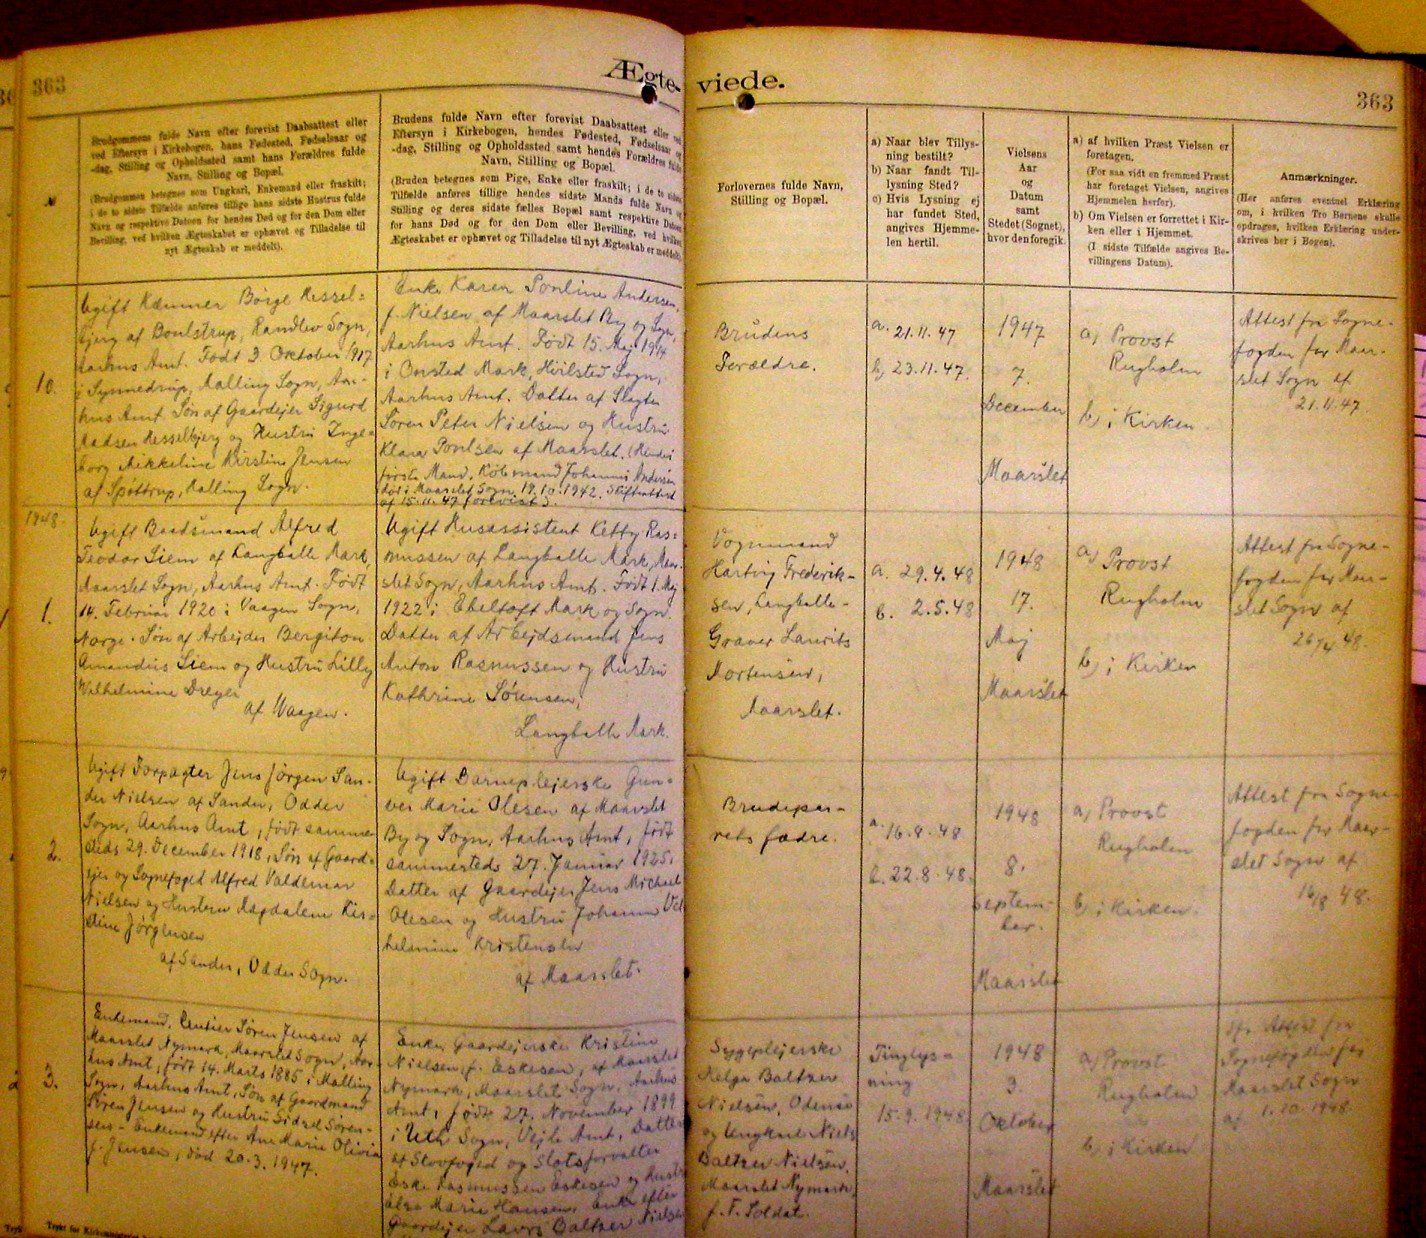 363
Ægte-
viede.
363
№
Brudgommens fulde Navn efter forevist Daabsattest eller
ved Eftersyn i Kirkebogen, hans Fødested, Fødselsaar og
-dag, Stilling og Opholdssted samt hans Forældres fulde
Navn, Stilling og Bopæl.
(Brudgommen betegnes som Ungkarl, Enkemand eller fraskilt;
i de to sidste Tilfælde anføres tillige hans sidste Hustrus fulde
Navn og respektive Datoen for hendes Død og for den Dom eller
Bevilling, ved hvilken Ægteskabet er ophævet og Tilladelse til
nyt Ægteskab er meddelt).
Brudens fulde Navn efter forevist Daabsattest eller ved
Eftersyn i Kirkebogen, hendes Fødested, Fødselsaar og
-dag, Stilling og Opholdssted samt hendes Forældres fulde
Navn, Stilling og Bopæl.
(Bruden betegnes som Pige, Enke eller fraskilt; i de to sidste
Tilfælde anføres tillige hendes sidste Mands fulde Navn og
Stilling og deres sidste fælles Bopæl samt respektive Datoen
for hans Død og for den Dom eller Bevilling, ved hvilken
Ægteskabet er ophævet og Tilladelse til nyt Ægteskab er meddelt).
Forlovernes fulde Navn,
Stilling og Bopæl.
a) Naar blev Tillys-
ning bestilt?
b) Naar fandt Til-
lysning Sted?
c) Hvis Lysning ej
har fundet Sted,
angives Hjemme-
len hertil.
Vielsens
Aar
og
Datum
samt
Stedet (Sognet),
hvor den foregik.
a) af hvilken Præst Vielsen er
foretagen.
(For saa vidt en fremmed Præst
har foretaget Vielsen, angives
Hjemmelen herfor).
b) Om Vielsen er forrettet i Kir-
ken eller i Hjemmet.
(I sidste Tilfælde angives Be-
villingens Datum).
Anmærkninger.
(Her anføres eventuel Erklæring
om, i hvilken Tro Børnene skulle
opdrages, hvilken Erklæring under-
skrives her i Bogen).
10.
Ugift Kæmner Börge Hessel=
bjerg af Boulstrup, Randlev Sogn,
Aarhus Amt. Født 3. Oktober 1917
i Synnedrup, Malling Sogn, Aar-
hus Amt. Søn af Gaardejer Sigurd
Madsen Hesselbjerg og Hustru Inge=
borg Mikkeline Kirstine Jensen
af Spøttrup, Malling Sogn.
Enke Karen Pouline Andersen,
f. Nielsen af Maarslet By og Sogn,
Aarhus Amt. Født 15. Maj 1914
i Onsted Mark, Hvilsted Sogn,
Aarhus Amt. Datter af Slagter
Søren Peter Nielsen og Hustru
Klara Poulsen af Maarslet. (Hendes
første Mand, Købmand Johannes Andersen
død i Maarslet Sogn 19.10.1942. Skifteattest
af 15.11.47 forevist).
Brudens
Forældre.
a. 21.11.47
b, 23.11.47.
1947
7.
December
Maarslet
a, Provst
Rugholm
b, i Kirken.
Attest fra Sogne-
fogden for Maar-
slet Sogn af
21.11.47.
1948.
1.
Ugift Baadsmand Alfred
Teodor Liem af Langballe Mark,
Maarslet Sogn, Aarhus Amt. Født
14. Februar 1920 i Vaagen Sogn,
Norge. Søn af Arbejder Bergiton
Amandus Liem og Hustru Lilly
Wilhelmine Dreyer
af Vaagen.
Ugift Husassistent Ketty Ras=
mussen af Langballe Mark, Maar-
slet Sogn, Aarhus Amt. Født 1. Maj
1922 i Ebeltoft Mark og Sogn.
Datter af Arbejdsmand Jens
Anton Rasmussen og Hustru
Kathrine Sörensen,
Langballe Mark.
Vognmand
Hartvig Frederik-
sen, Langballe-
Graver Laurits
Mortensen,
Maarslet.
a. 29.4.48
b. 2.5.48
1948
17.
Maj
Maarslet
a, Provst
Rugholm
b, i Kirken
Attest fra Sogne-
fogden for Maar-
slet Sogn af
26/4 48.
2.
Ugift Forpagter Jens Jörgen San-
der Nielsen af Sander, Odder
Sogn, Aarhus Amt, født samme-
steds 29. December 1918, Søn af Gaard=
ejer og Sognefoged Alfred Valdemar
Nielsen og Hustru Magdalene Kir=
stine Jörgensen
af Sander, Odder Sogn.
Ugift Barneplejerske Gun=
ver Marie Olesen af Maarslet
By og Sogn, Aarhus Amt, født
sammesteds 27. Januar 1925.
Datter af Gaardejer Jens Michael
Olesen og Hustru Johanne Vil
helmine Kristensen
af Maarslet.
Brudepar-
rets fædre.
a. 16.8.48
b. 22.8.48.
1948
8.
Septem-
ber.
Maarslet
a, Provst
Rugholm
b, i Kirken.
Attest fra Sogne-
fogden for Maar-
slet Sogn af
16/8 48.
3.
Enkemand, Rentier Søren Jensen af
Maarslet Nymark, Maarslet Sogn, Aar-
hus Amt, født 14. Marts 1885 i Malling
Sogn, Aarhus Amt, Søn af Gaardmand
Søren Jensen og Hustru Sidsel Søren-
sen - Enkemand efter Ane Marie Olivia
f. Jensen, død 20.3.1947.
Enke Gaardejerske Kristine
Nielsen, f. Eskesen, af Maarslet
Nymark, Maarslet Sogn, Aarhus
Amt, født 27. November 1899
i Uth Sogn, Vejle Amt, Datter
af Skovfoged og Slotsforvalter
Eske Rasmussen Eskesen og Hustru
Else Marie Hansen. Enke efter
Gaardejer Laurs Baltzer Nielsen
Sygeplejerske
Helga Baltzer
Nielsen, Odense
og Ungkarl Niels
Baltzer Nielsen,
Maarslet Nymark,
f. T. Soldat.
Tinglys=
ning
15.9.1948
1948
3.
Oktober
Maarslet
a, Provst
Rugholm
b, i Kirken
Attest fra
Sognefogden for
Maarslet Sogn
af 1.10.1948.